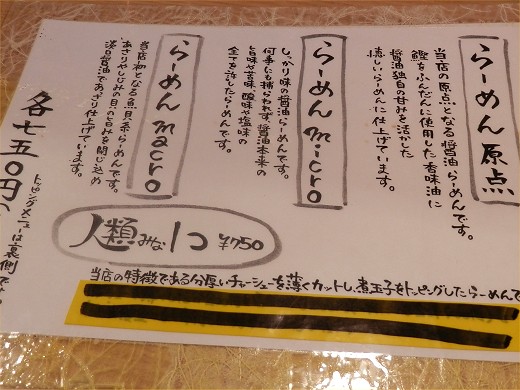 らーめん 原点
当店の原点となる醤油らーめんです。
鰹をふんだんに使用した香味油に
醤油独自の甘みを活かした
優しいらーめんに仕上げています。
らーめん micro
しっかり味の醤油らーめんです。
何事にも捕らわれず、醤油本来の
旨味や苦味、酸味や塩味の
全てを許いたらーめんです。
らーめん macro
当店初となる魚貝系らーめんです。
あさりやしじみの貝の旨みを閉じ込め
淡口醤油であっさり仕上げています。
各七五〇円
トッピングメニューは裏側です
人類みな1コ ¥750
当店の特徴である分厚いチャーシューを薄くカットし、煮玉子をトッピングしたらーめんで